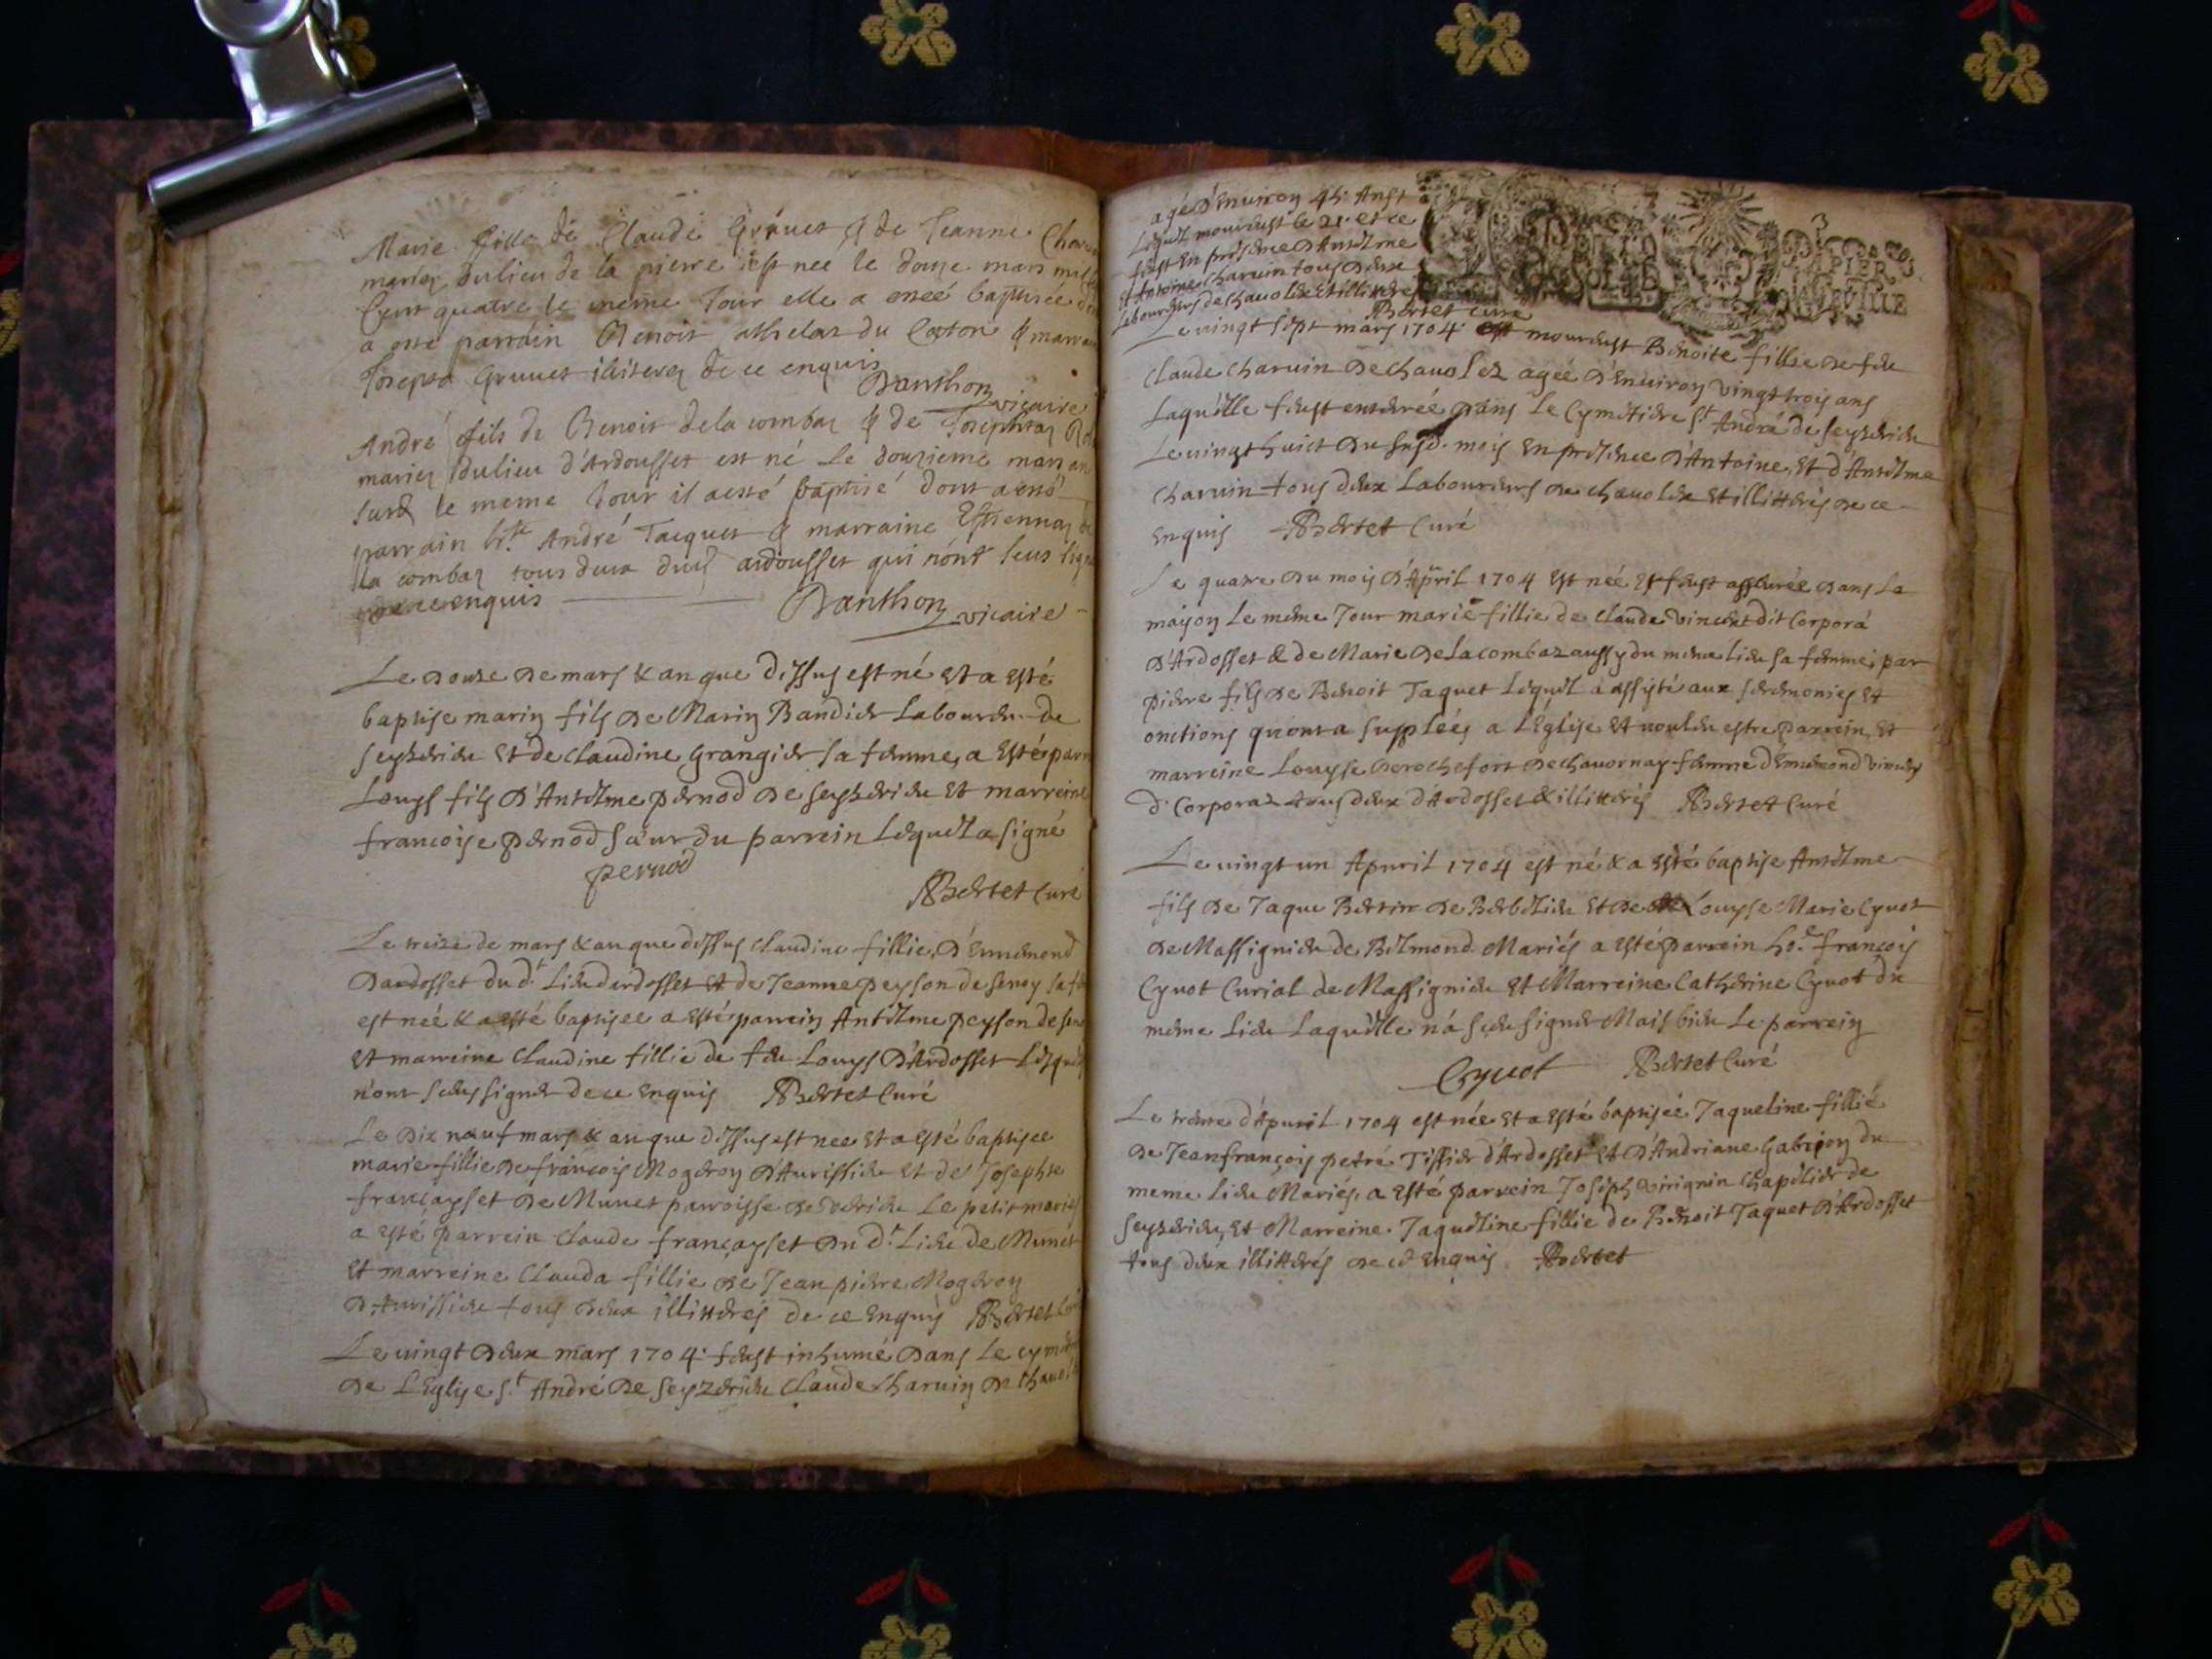 Marie fille de Claude Gruuet & de Jeanne
mariez dulieu de la pierre est nee le douze mars
Cent quatre le meme Jour elle a esteé baptisée
a esté parrain Benoit du &
Josepta Gruuet de ce enquis
Danthon vicaire
André fils de Benoit dela combaz & de
mariez dulieu d'Ardousset est né le douzieme mars
le meme Jour il aesté baptisé dont aesté
parrain André Jacquet & marraine Estiennaz
la combaz tous deux dud ardousset qui nont sceus
dece enquis
Danthon vicaire
Le douze de mars & an que dessus est né et a esté
baptise marin fils de Marin Bandier Laboureur de
seyzerieu et de Claudine Grangier sa femme, a esté
Louys fils d'Antelme pernod de seyzerieu et marreine
francoise pernod sœur du parrein lequel a signé
pernod
Bertet Curé
Le treize de mars & an que dessus Claudine fillie d'Ennemond
Dardosset du d.t Lieu dardosset et de Jeanne peyson de
est neé & a esté baptisee a esté parrein Antelme peyson de
et marreine Claudine fillie de feu Louys d'Ardosset
n'ont sceus signer de ce enquis Bertet Curé
Le dix neuf mars & an que dessus est nee et a esté baptisee
marie fillie de francois Mogeron d'Aurissieu et de Josephte
françayset de Munet parroisse de le petit mariés
a esté parrein Claude françayset du d.t Lieu de Munet
et marreine Clauda fillie de Jean pierre Mogeron
d'Aurissieu tous deux illitterés de ce enquis Bertet
Le vingt deux mars 1704 feust inhumé dans Le
de L'Eglise S.t André de Seyzerieu Claude Charuin de
agé d'Enuiron 45 Ans
Lequel mourust le 21 et ce
fust en présence d'Antelme
et Antoine Charuin tous deux
Laboureurs de Chauolex et illitterés
Bertet Curé
Le vingt sept mars 1704 mourust Benoite fillie de feu
Claude Charuin de Chauolez ageé d'Enuiron vingt trois ans
Laquelle feust enterreé dans Le Cymetiere S.t André de Seyzerieu
Le vingt huict du susd. mois en présence d'Antoine et d'Antelme
Charuin tous deux Laboureurs de Chauolex et illitterés de ce
enquis Bertet Curé
Le quatre du mois d'Apuril 1704 est née et feust dans La
maison Le meme Jour marie fillie de Claude vincent dit Corpora
d'Ardosset & de Marie de Lacombaz aussy du meme lieu sa femme; par
pierre fils de Benoit Jaquet Lequel a assisté aux ceremonies et
onctions qu'on a suppleés a L'Eglise et uoulu estre parrein, et
marreine Louyse de rochefort de Chauornay femme d'Ennemond vincent
d. Corpora tous deux d'Ardosset & illitterés Bertet Curé
Le vingt un Apuril 1704 est né & a esté baptise Antelme
fils de Jaque Bertin de et de Louyse Marie Cyuot
de Massignieu de Belmond Mariés a esté parrein ho.e françois
Cyuot Curial de Massignieu et Marreine Catherine Cyuot du
meme lieu Laquelle n'a sceu signer Mais bien Le parrein
Cyuot Bertet Curé
Le trente d'Apuril 1704 est née et a esté baptiseé Jaqueline fillie
de Jean françois petré Tissier d'Ardosset et d'Andriane Gabrion du
meme Lieu Mariés, a esté parrein Joseph Chapelier de
Seyzerieu, et Marreine Jaqueline fillie de Benoit Jaquet d'Ardosset
tous deux illitterés de ce enquis Bertet